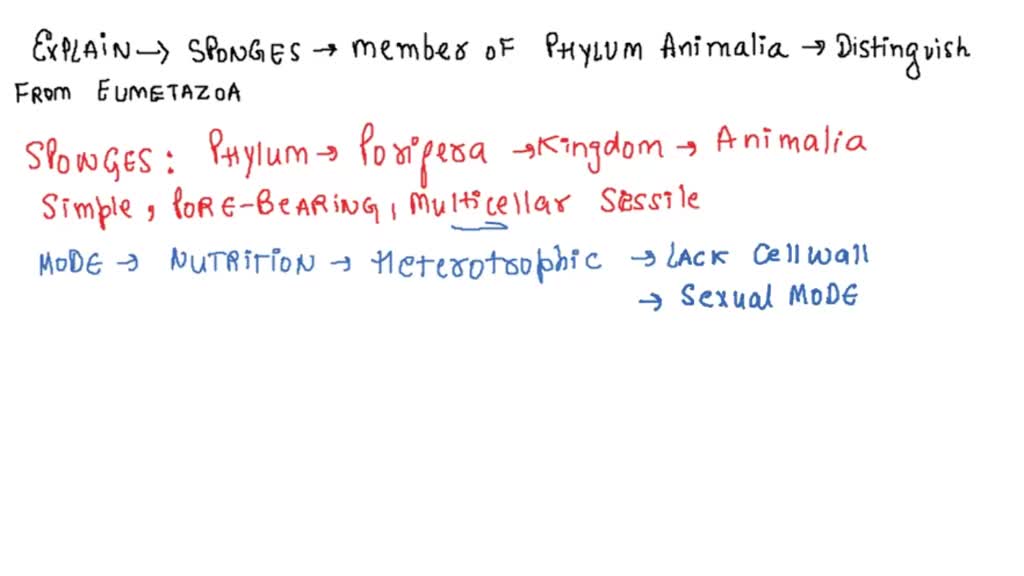 EXPLAIN → SPONGES → member OF PHYLUM Animalia → Distinguish
FROM EUMETAZOA
SPONGES: PHYLUM → Porifera → Kingdom → Animalia
Simple, PORE-BEARING, Multicellar Sessile
MODE → NUTRITION → Heterotrophic → LACK Cell wall
→ Sexual MODE